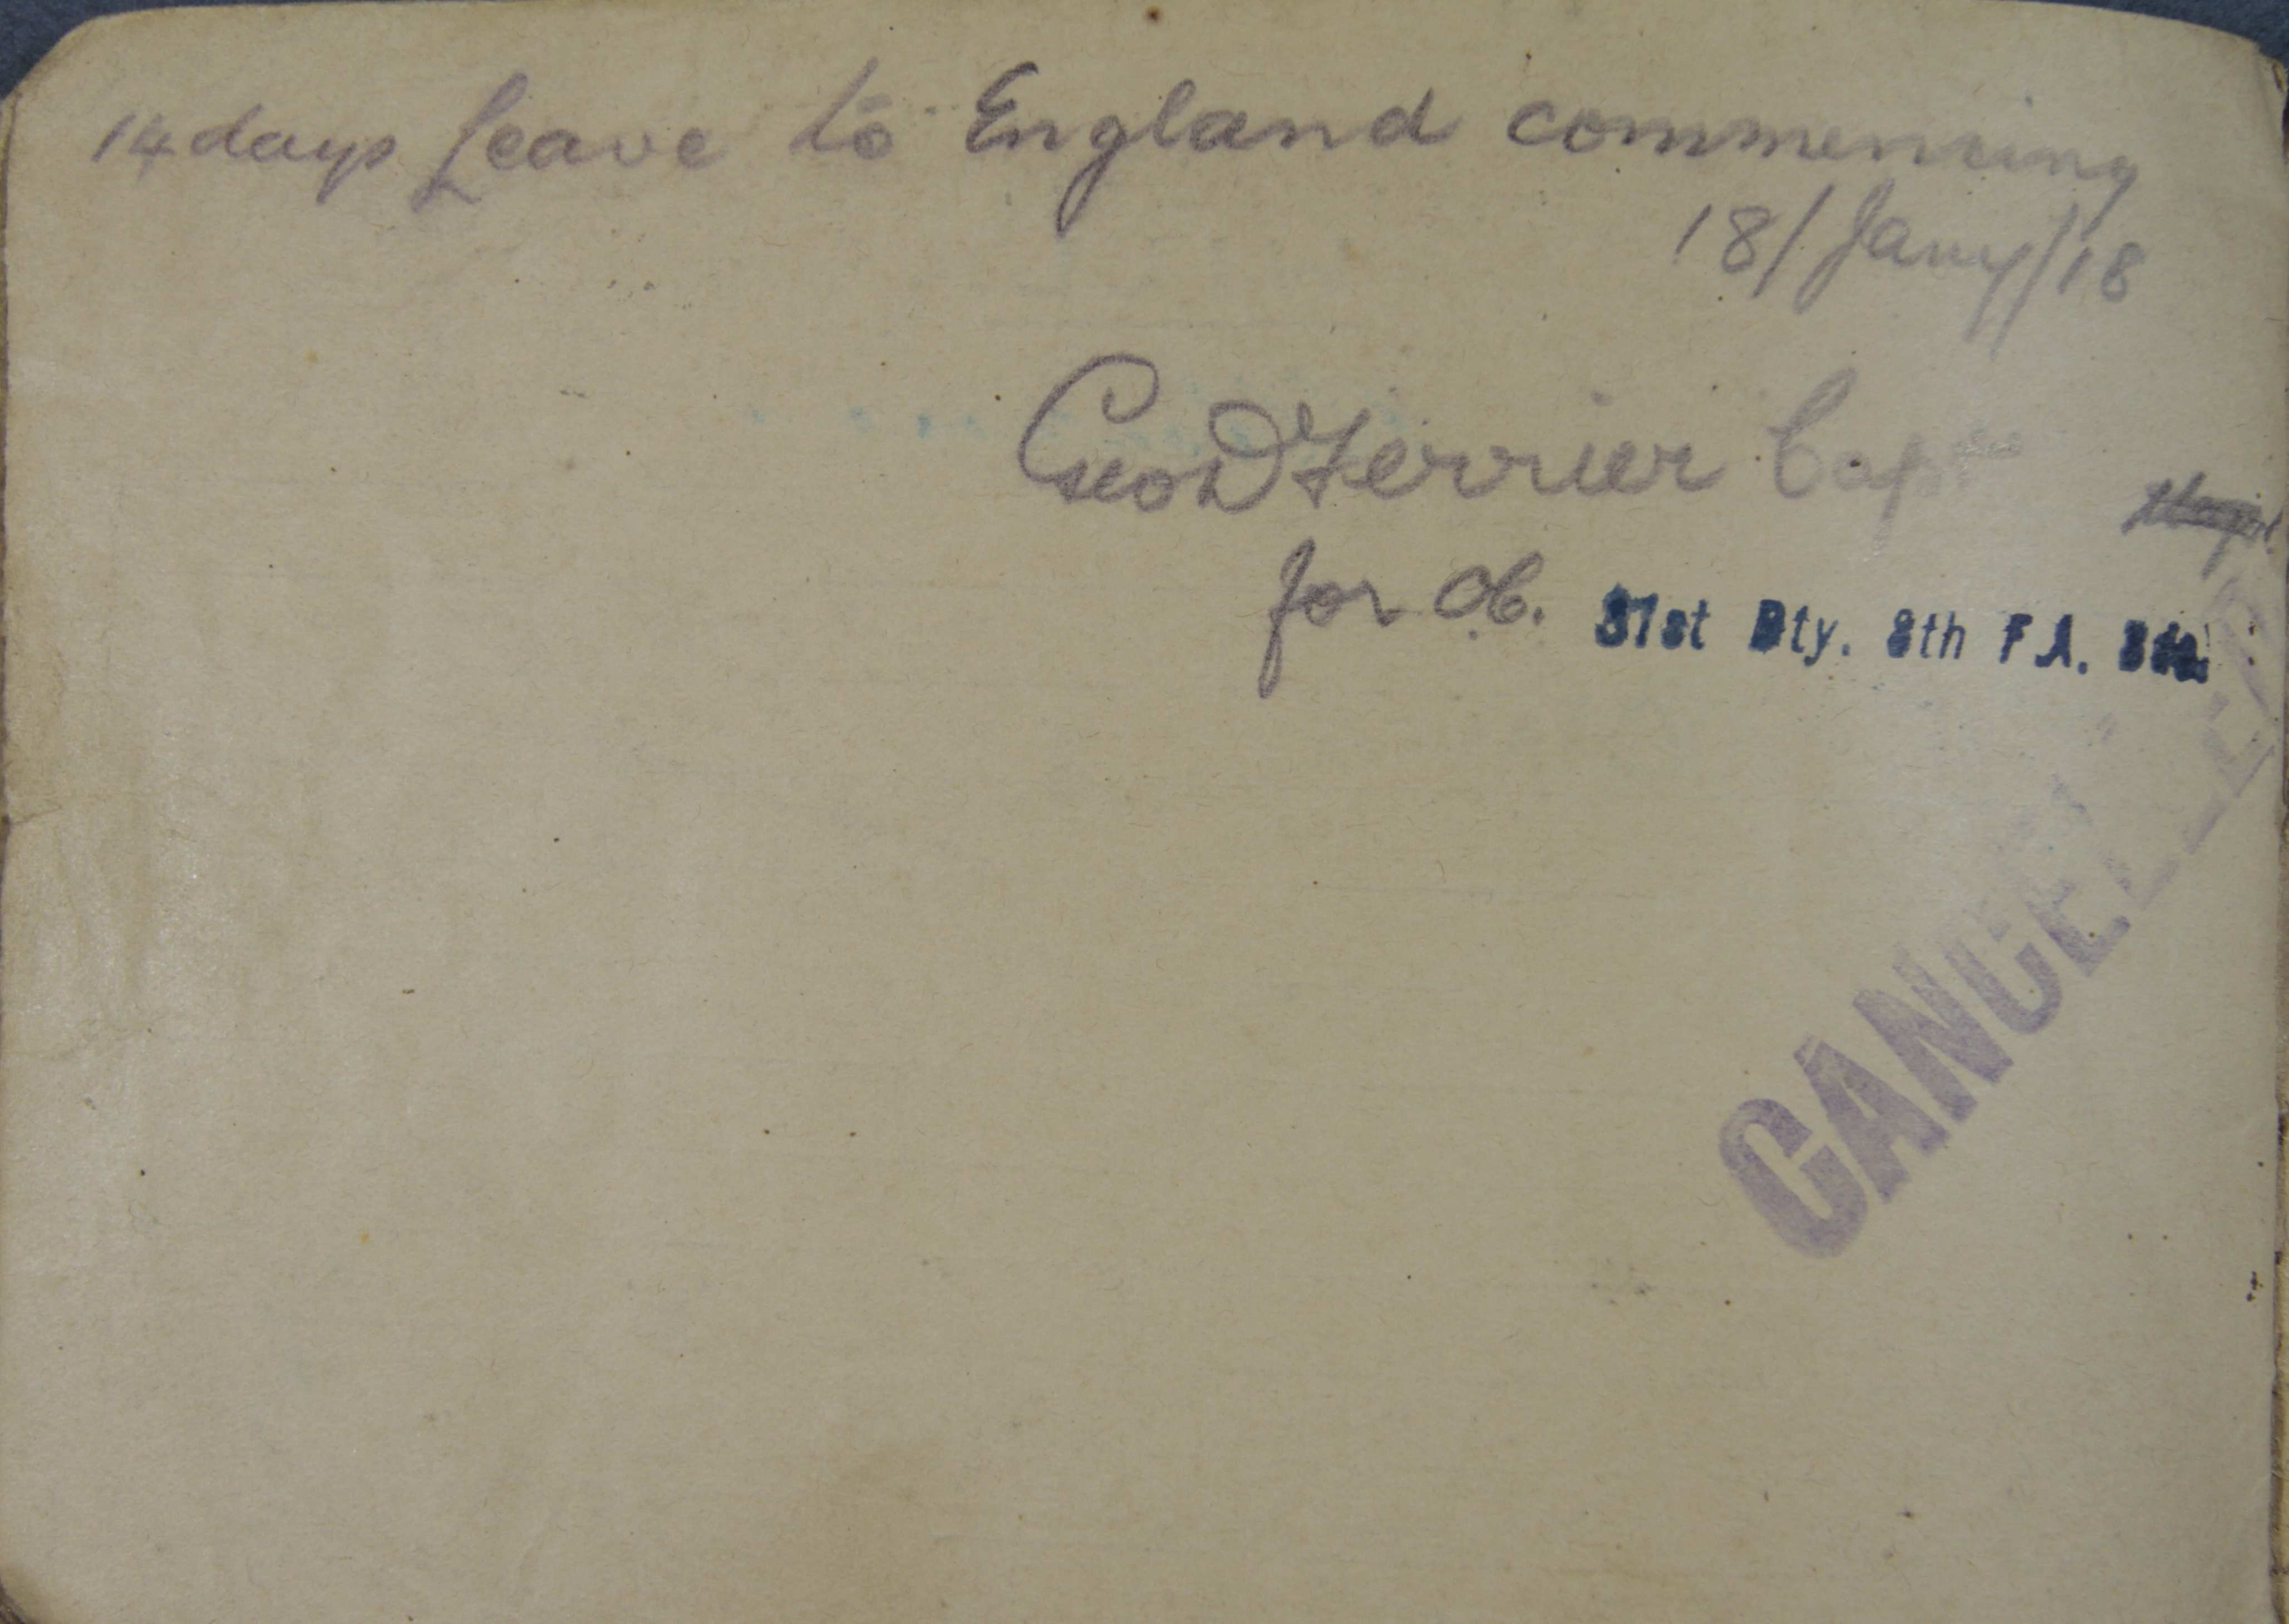 14 days Leave to England commencing
18/Jany/18
Geo D Ferrier Capt
Major
for O.C. 31st Bty. 8th F.A. Bde.
CANCELLED